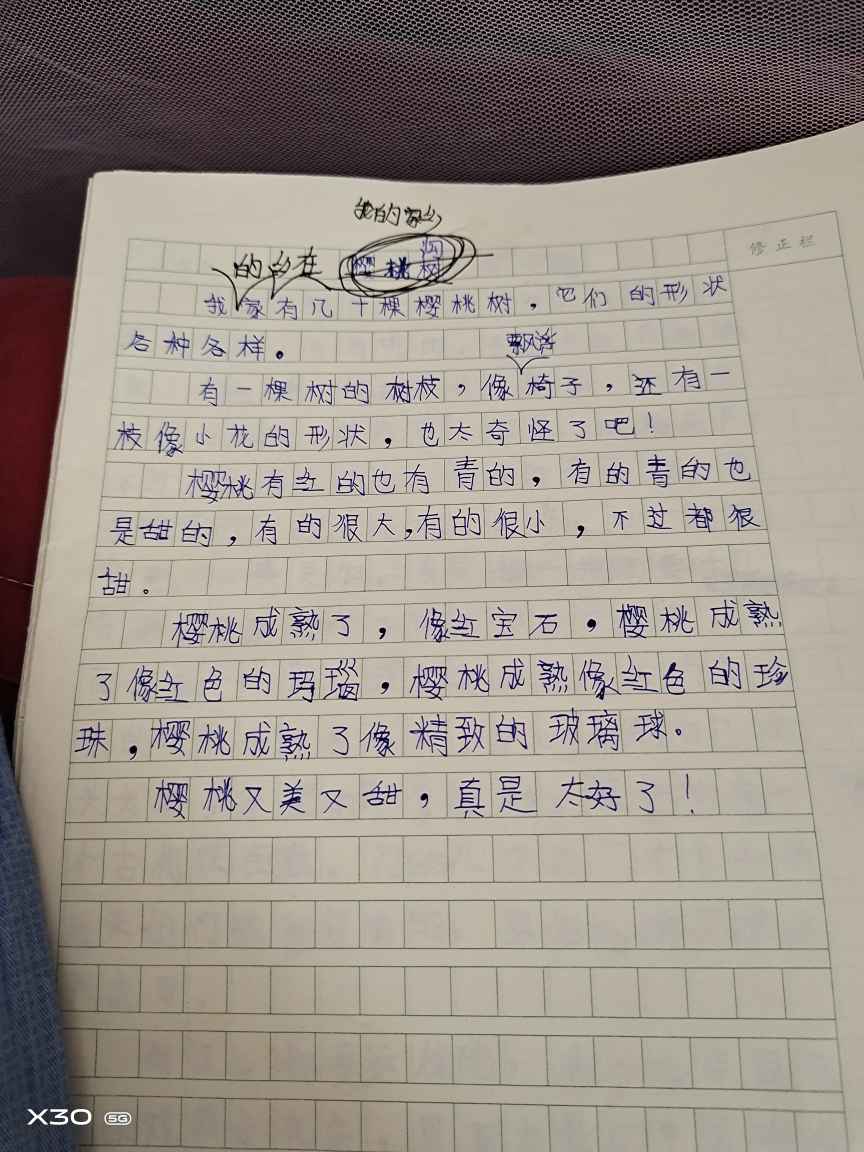 我的家乡
修正栏
的乡在 樱桃树
沟
我家有几十棵樱桃树，它们的形状
各种各样。
飘浮
有一棵树的树枝，像椅子，还有一
枝像小花的形状，也太奇怪了吧！
樱桃有红的也有青的，有的青的也
是甜的，有的很大，有的很小，不过都很
甜。
樱桃成熟了，像红宝石，樱桃成熟
了像红色的玛瑙，樱桃成熟像红色的珍
珠，樱桃成熟了像精致的玻璃球。
樱桃又美又甜，真是太好了！
X30 5G